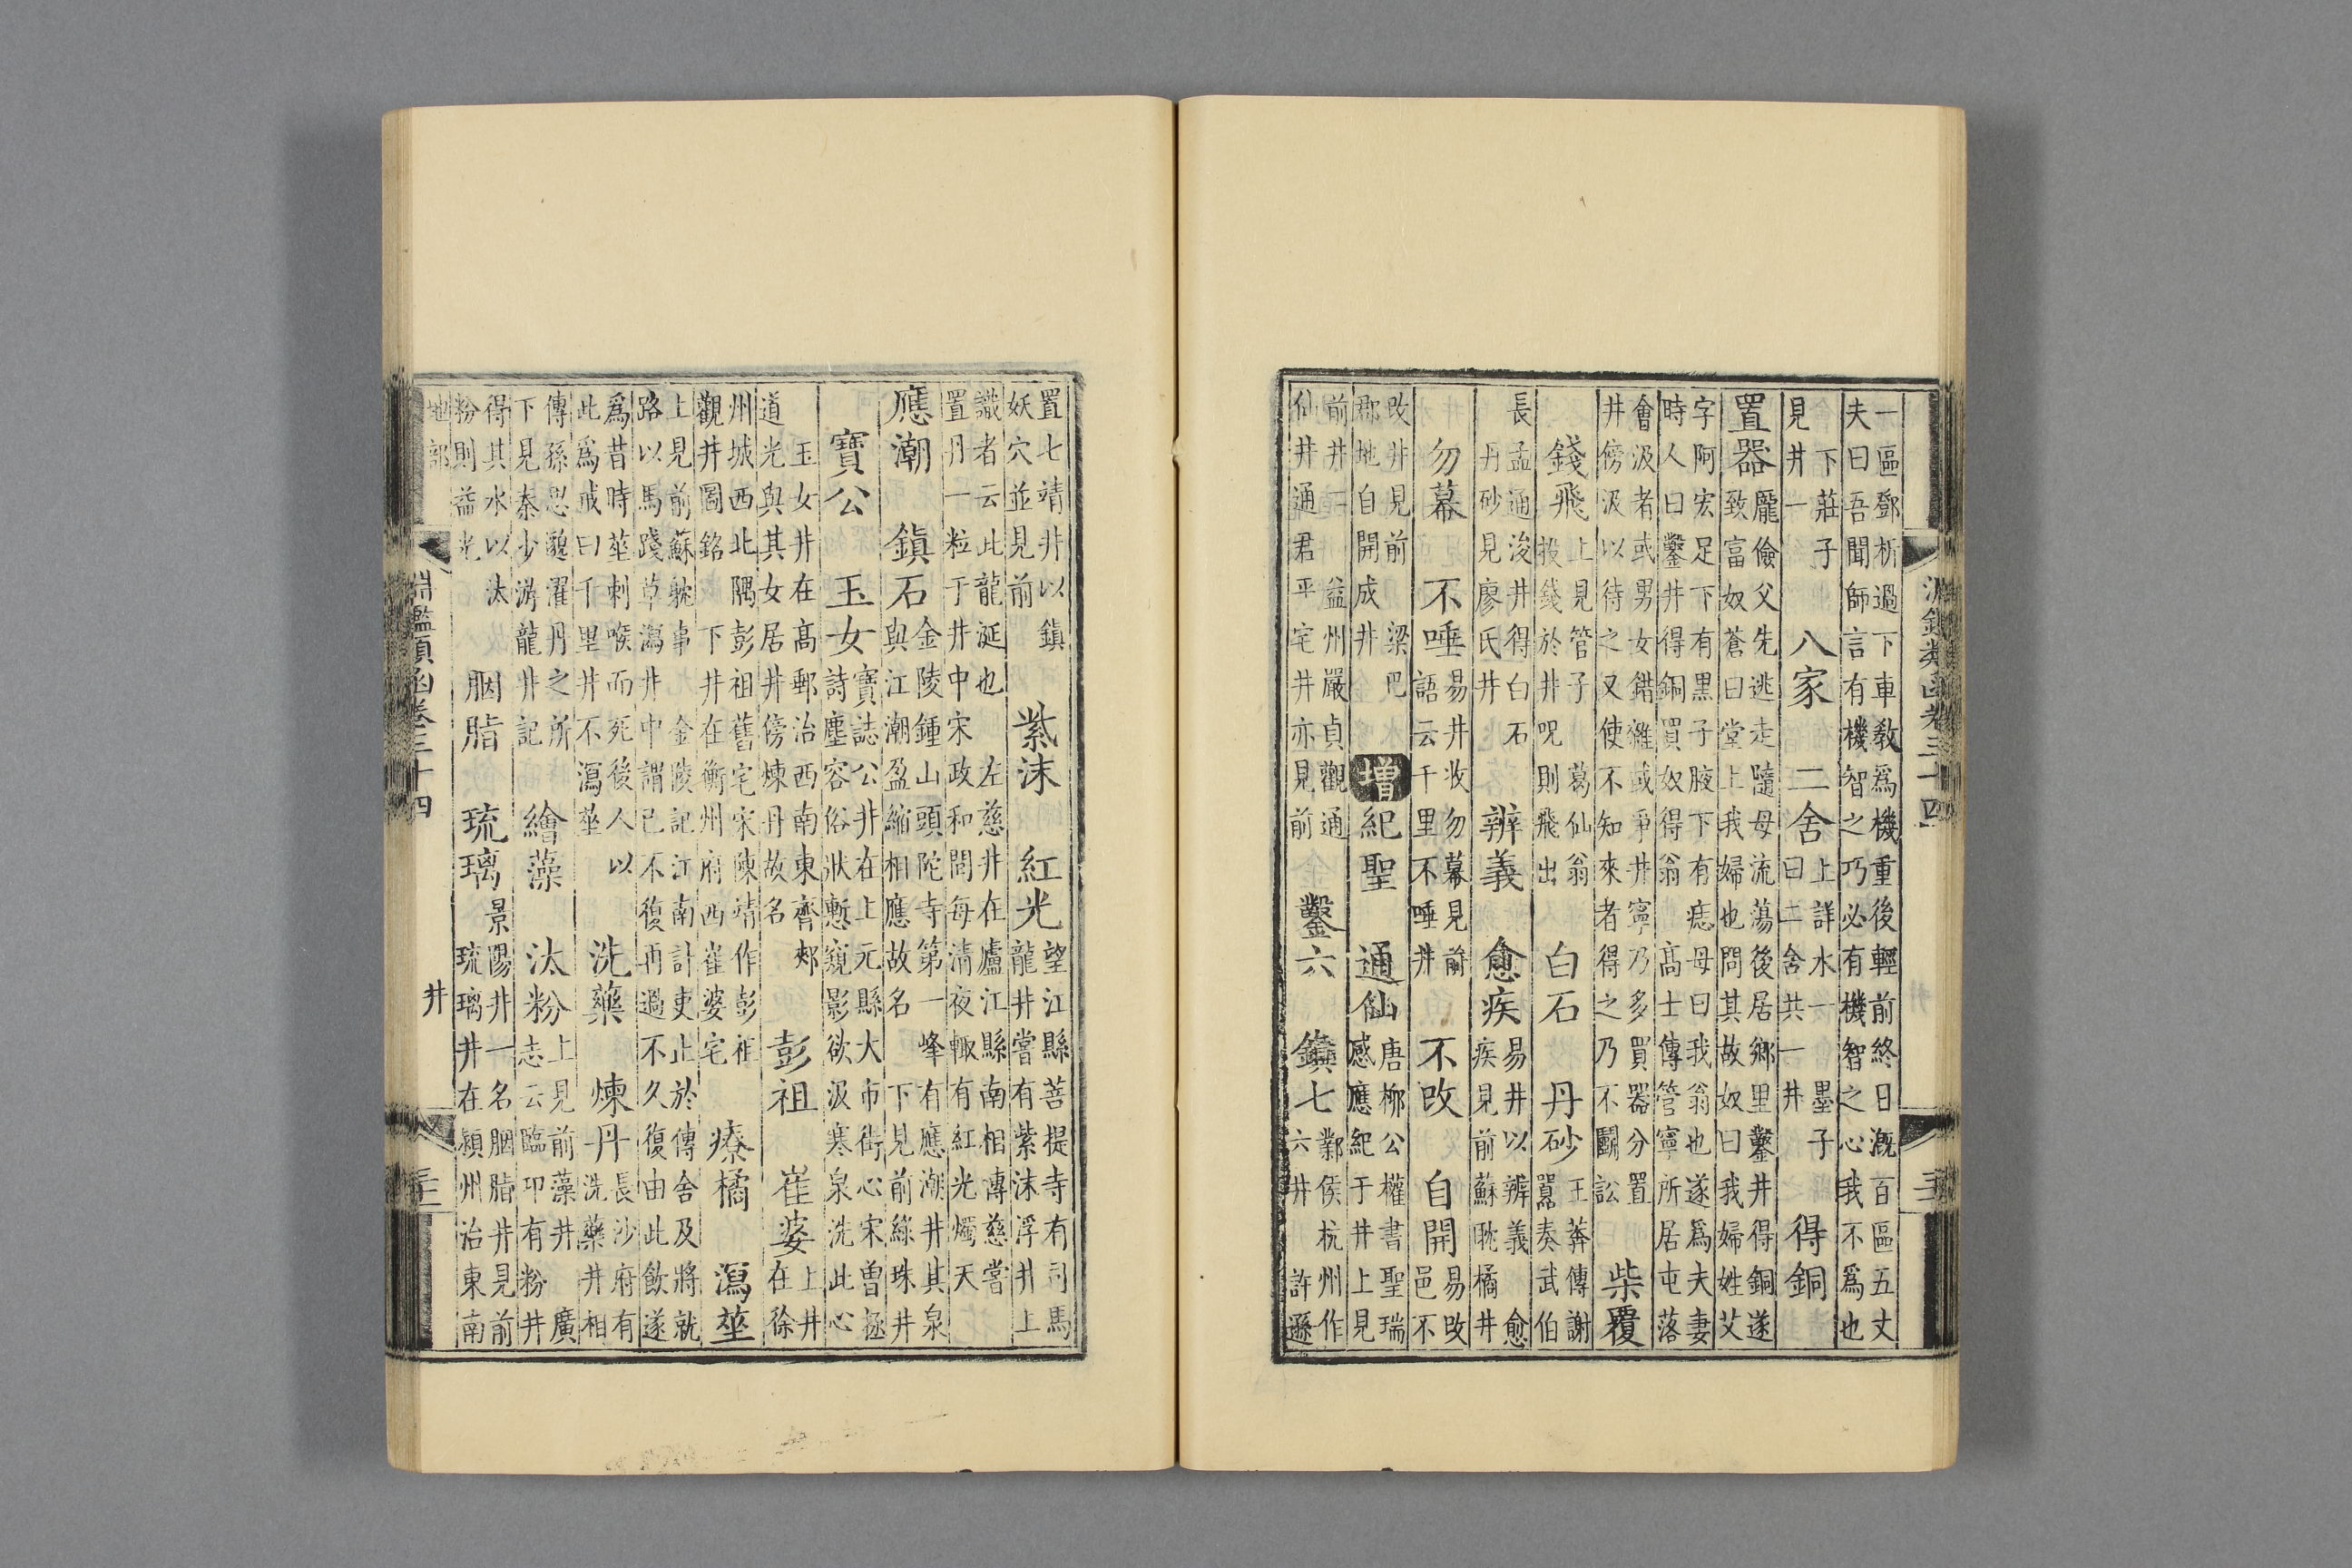 一區鄧析過下車教爲機重後輕前終日漑百區五丈
夫曰吾聞師言有機智之巧必有機智之心我不爲也
下莊子 八家 二舍上詳水一 墨子 得銅
見井一 曰二舍共一井
置器龐儉父先逃走隨母流蕩後居鄉里鑿井得銅遂
致富奴蒼曰堂上我婦也問其故奴曰我婦姓艾
字阿宏足下有黒子腋下有痣母曰我翁也遂爲夫妻
時人曰鑿井得銅買奴得翁 髙士傳管寧所居屯落
會汲者或男女錯雜或爭井寧乃多買器分置 柴覆
井傍汲以待之又使不知來者得之乃不鬬訟
錢飛上見管子 葛仙翁 白石 丹砂王莽傳謝
投錢於井呪則飛出 囂奏武伯
長孟通浚井得白石 辨義 愈疾易井以辨義 愈
丹砂見廖氏井 疾見前蘇耽橘井
勿幕 不唾易井收勿幕見前 不改 自開易改
語云千里不唾井 邑不
改井見前 梁巴 增紀聖 通仙唐柳公權書聖瑞
郡地自開成井 感應紀于井上見
前井一 益州嚴貞觀通 鑿六 鎮七鄴侯杭州作
仙井通君平宅井亦見前 六井 許遜
置七靖井以鎮 紫沫 紅光望江縣菩提寺有司馬
妖穴並見前 龍井嘗有紫沫浮井上
識者云此龍涎也 左慈井在廬江縣南相傳慈嘗
置丹一粒于井中宋政和間每清夜輙有紅光燭天
應潮 鎮石金陵鍾山頭陀寺第一峰有應潮井其泉
與江潮盈縮相應故名 下見前綠珠井
寶公 玉女寶誌公井在上元縣大市街心宋曾極
詩塵容俗狀慙窺影欲汲寒泉洗此心
玉女井在髙郵治西南東齊郟 彭祖 崔婆上井
道光與其女居井傍煉丹故名 在徐
州城西北隅彭祖舊宅宋陳靖作彭祖 療橘 瀉莝
觀井圖銘 下井在衡州府西崔婆宅
上見前蘇躭事 金陵記江南計吏止於傳舍及將就
路以馬踐草瀉井中謂已不復再過不久復由此飮遂
爲昔時莝刺喉而死後人以 洗藥 煉丹長沙府有
此爲戒曰千里井不瀉莝 洗藥井相
傳孫思邈濯丹之所 繪藻 汰粉上見前藻井 廣
下見秦少游龍井記 志云臨卭有粉井
得其水以汰 胭脂 琉璃景陽井一名胭脂井見前
粉則益光 琉璃井在潁州治東南
地部 淵鑑類函卷三十四 井